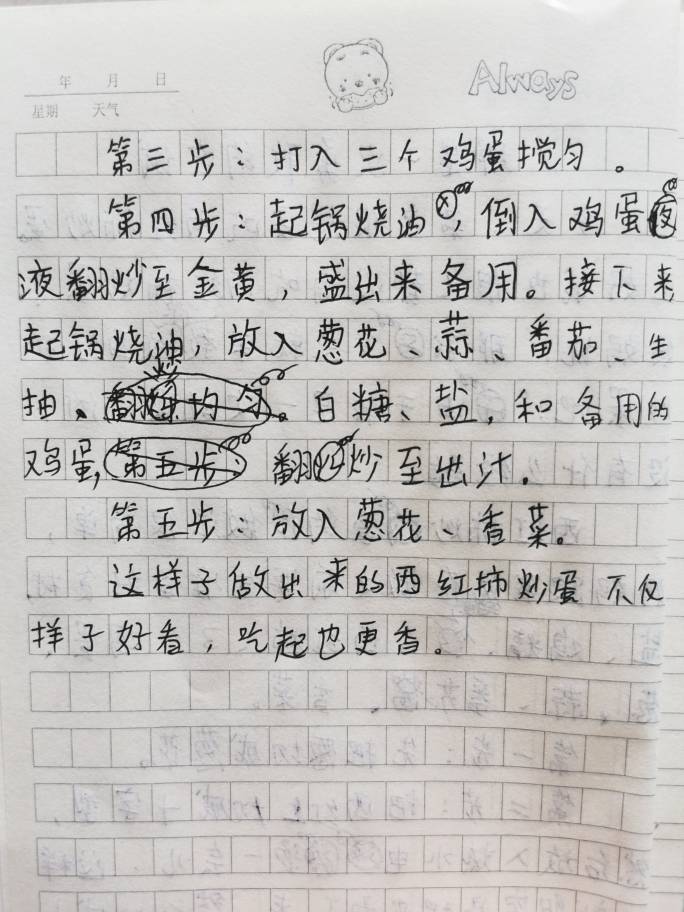 年 月 日
星期 天气
Always
第三步：打入三个鸡蛋搅匀。
第四步：起锅烧油，倒入鸡蛋
液翻炒至金黄，盛出来备用。接下来
起锅烧油，放入葱花、蒜、番茄、生
抽、白糖、盐，和备用的
鸡蛋，翻炒至出汁。
第五步：放入葱花、香菜。
这样子做出来的西红柿炒蛋不仅
样子好看，吃起也更香。